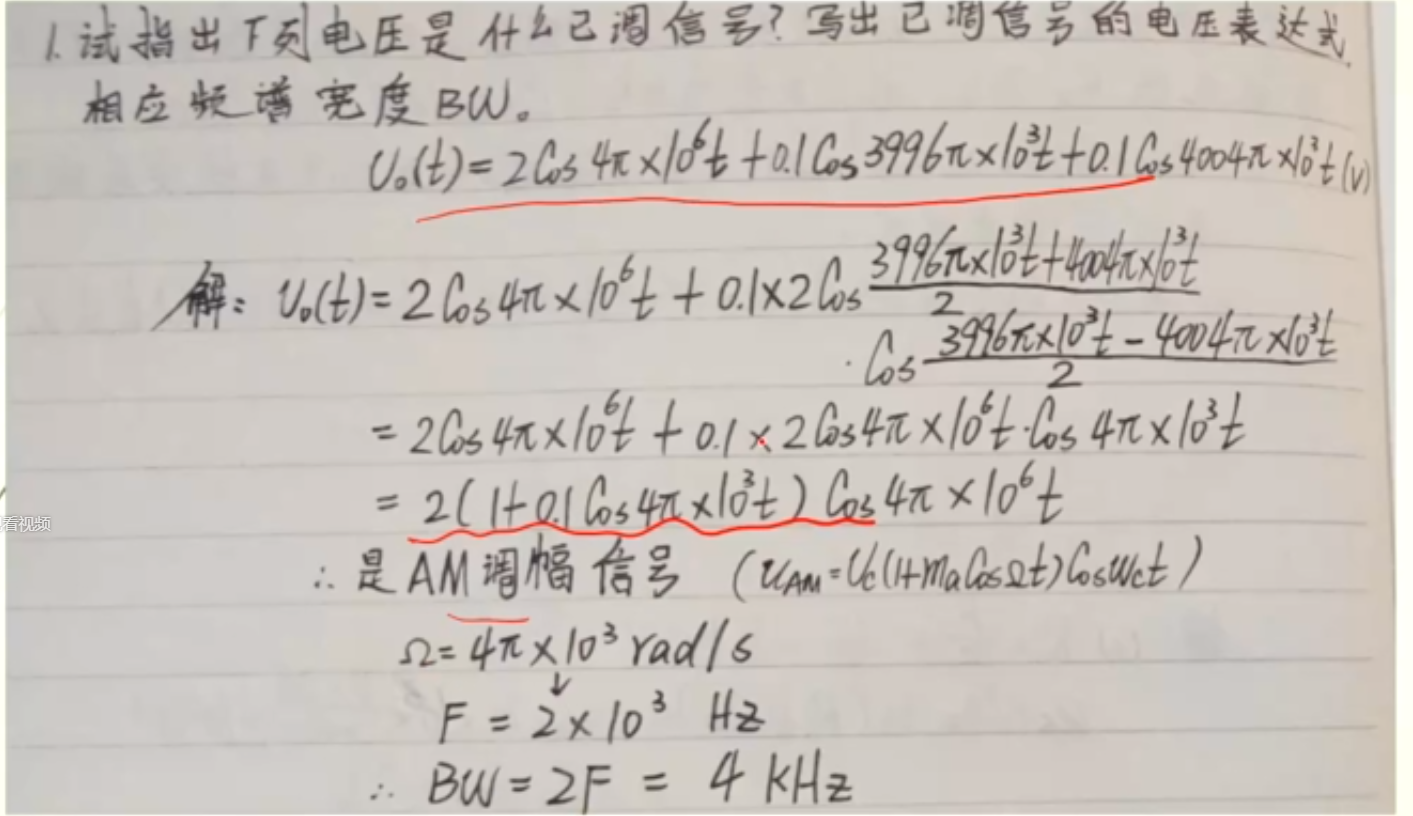 1.试指出下列电压是什么已调信号?写出已调信号的电压表达式.
相应频谱宽度BW。
U₀(t)=2Cos4π×10⁶t+0.1Cos3996π×10³t+0.1Cos4004π×10³t(V)
解: U₀(t)=2Cos4π×10⁶t+0.1×2Cos (3996π×10³t+4004π×10³t)/2
·Cos (3996π×10³t-4004π×10³t)/2
=2Cos4π×10⁶t+0.1×2Cos4π×10⁶t·Cos4π×10³t
=2(1+0.1Cos4π×10³t)Cos4π×10⁶t
∴是AM调幅信号 (U_AM=Uc(1+maCosΩt)Cosωct)
Ω=4π×10³rad/s
↓
F=2×10³ Hz
∴BW=2F=4KHz
看视频